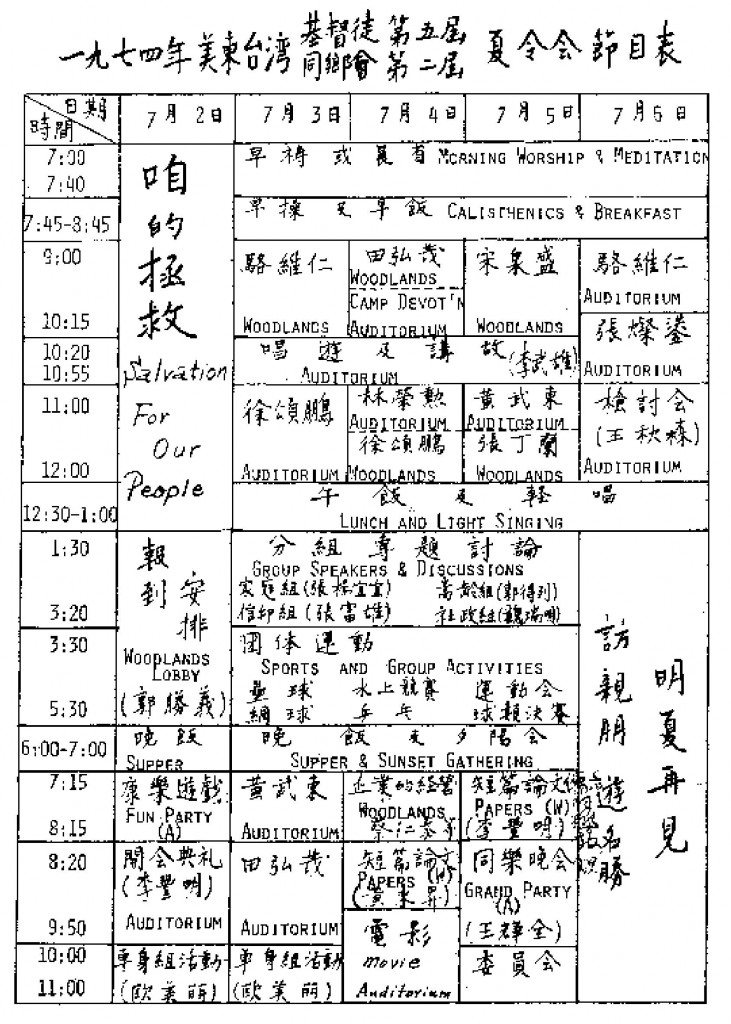 一九七四年美東台湾 基督徒 第五屆 夏令会節目表
同鄉會 第二屆
日期 7月2日 7月3日 7月4日 7月5日 7月6日
時間
7:00 早禱 或 晨省 MORNING WORSHIP & MEDITATION
7:40
咱的拯救
7:45-8:45 早操 及 早飯 CALISTHENICS & BREAKFAST
9:00 駱維仁 田弘茂 宋泉盛 駱維仁
WOODLANDS AUDITORIUM
CAMP DEVOT'N
10:15 WOODLANDS AUDITORIUM WOODLANDS 張燦鍙
10:20 唱遊及講故 (李武雄)
10:55 AUDITORIUM AUDITORIUM
Salvation
For
Our
People
11:00 徐頌鵬 林榮勳 黃武東 檢討会
AUDITORIUM AUDITORIUM (王秋森)
徐頌鵬 張丁蘭
12:00 AUDITORIUM WOODLANDS WOODLANDS AUDITORIUM
12:30-1:00 午飯及輕唱
LUNCH AND LIGHT SINGING
1:30 報到 安排 分組專題討論
GROUP SPEAKERS & DISCUSSIONS
家庭組(張楊宜宜) 高齡組(郭得列)
3:20 信仰組(張富雄) 社政組(魏瑞明)
訪親朋 遊名勝
明夏再見
3:30 WOODLANDS LOBBY 团体運動
SPORTS AND GROUP ACTIVITIES
壘球 水上競賽 運動会
5:30 (郭勝義) 網球 乒乓 球類決賽
6:00-7:00 晚飯 晚飯及夕陽会
SUPPER SUPPER & SUNSET GATHERING
7:15 康樂遊戲 黃武東 企業的經營 短篇論文
FUN PARTY WOODLANDS PAPERS (W)
8:15 (A) AUDITORIUM (李豐明)
8:20 開会典礼 田弘茂 短篇論文 同樂晚会
(李豐明) PAPERS (W) GRAND PARTY
(A)
AUDITORIUM AUDITORIUM 電影 (王群全)
9:50 movie
10:00 單身組活動 單身組活動 委員会
11:00 (欧美萌) (欧美萌) Auditorium